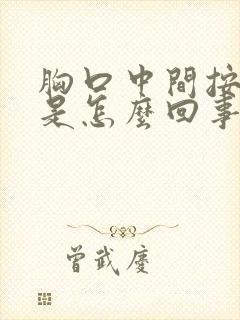 胸口中間按
是怎麼回事
曾武慶